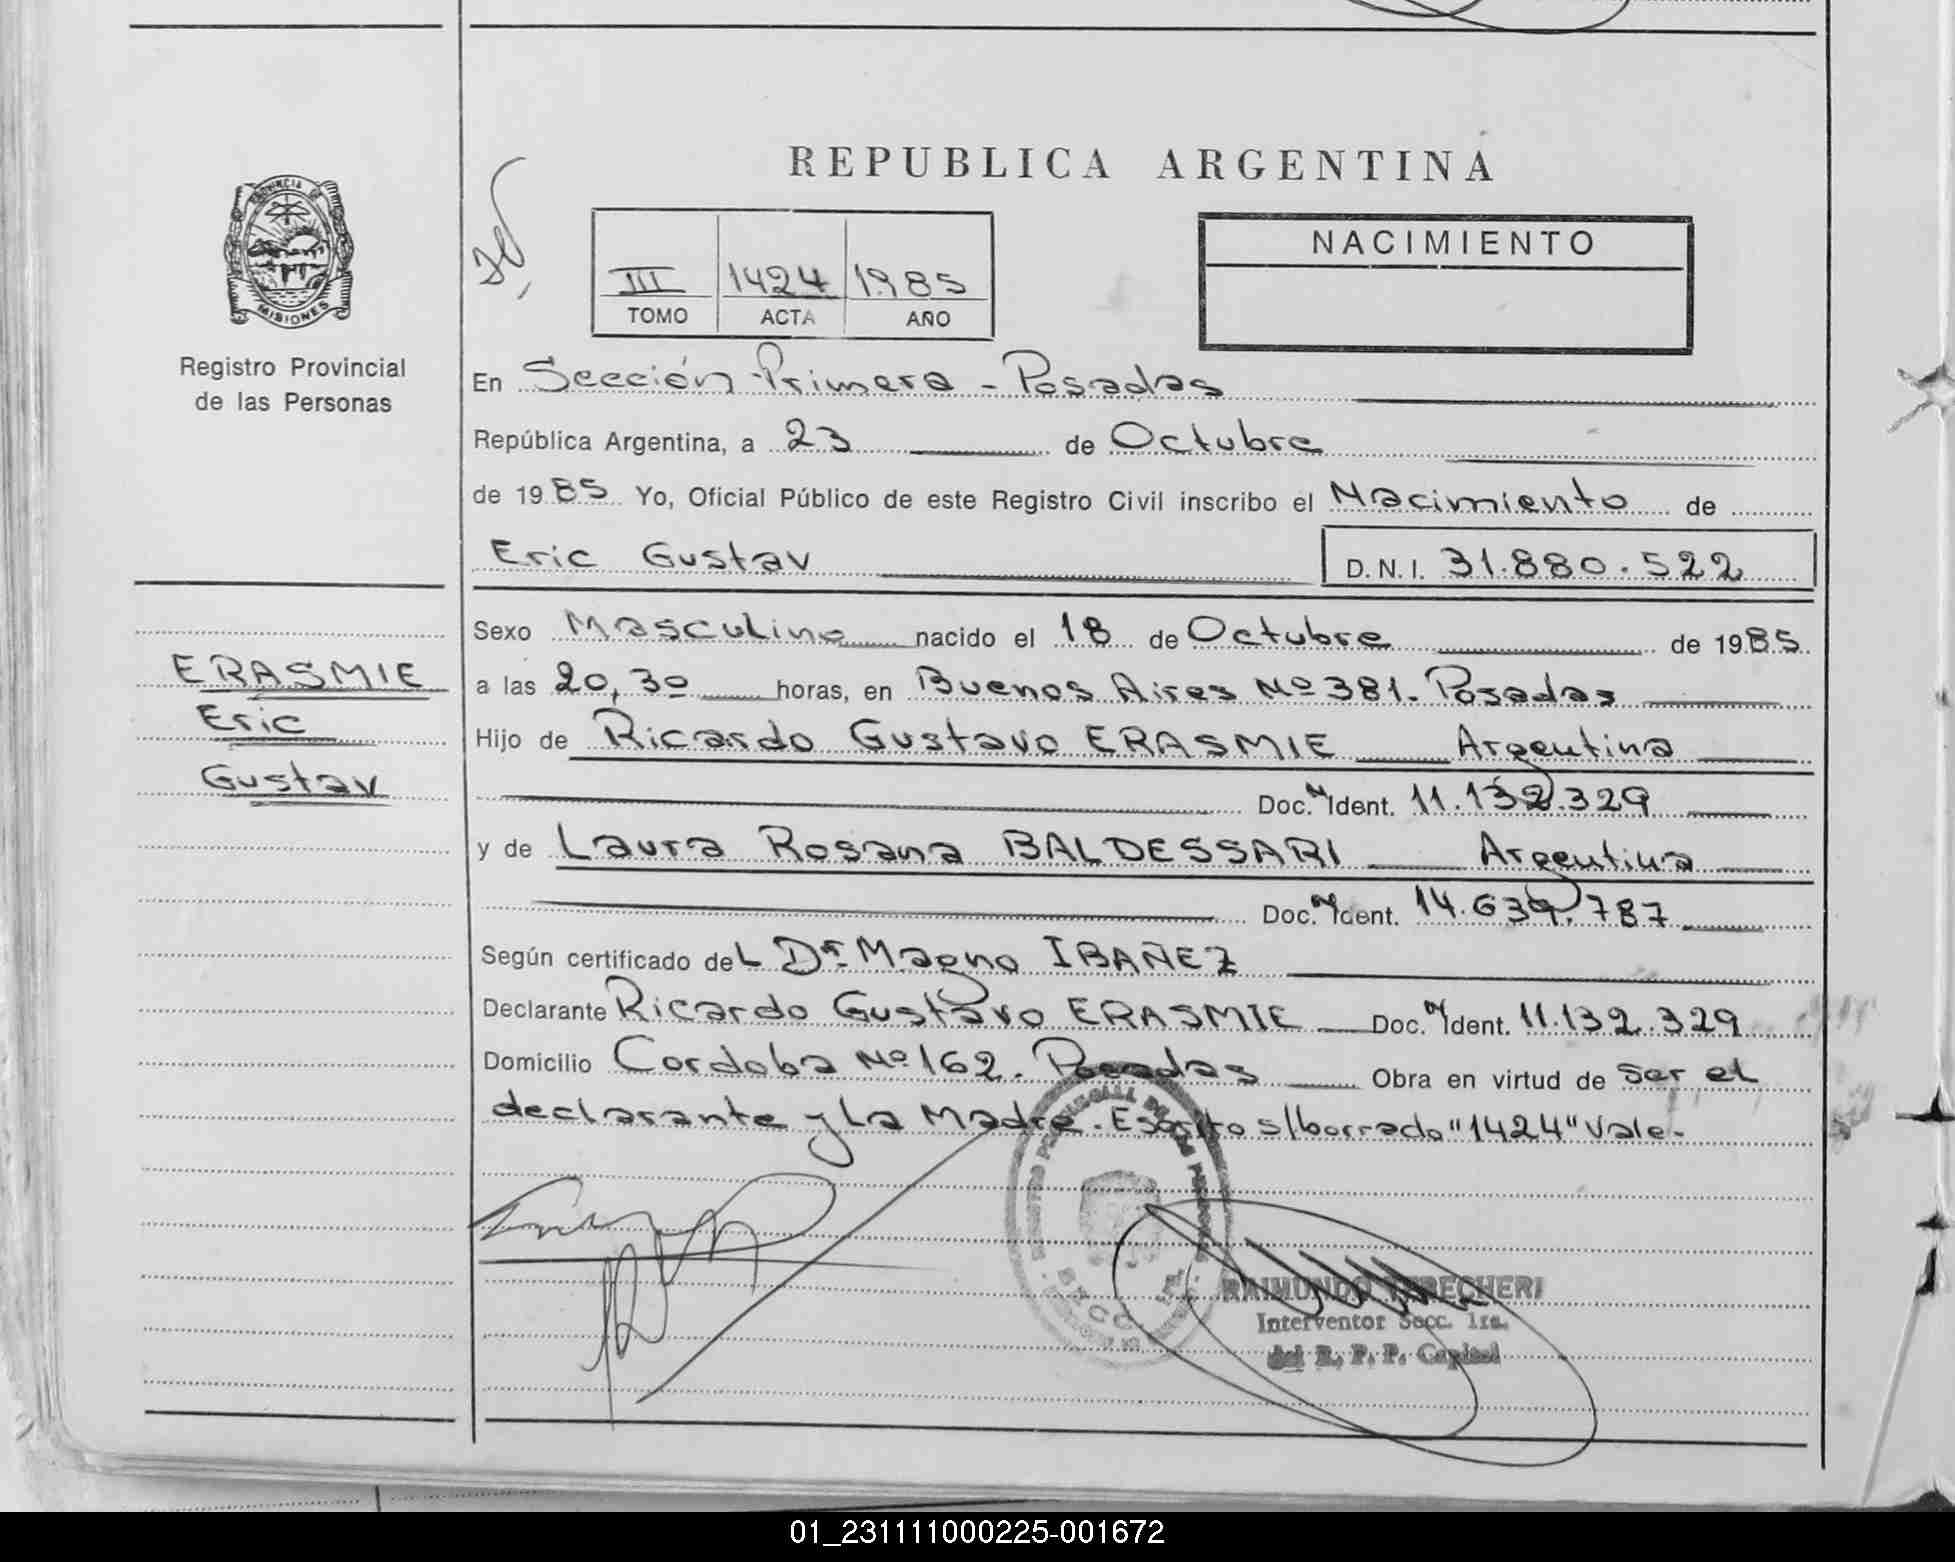 REPUBLICA ARGENTINA
PROVINCIA DE
MISIONES
Registro Provincial
de las Personas
III 1424 1985
TOMO ACTA AÑO
NACIMIENTO
En Sección Primera - Posadas
República Argentina, a 23 de Octubre
de 1985 Yo, Oficial Público de este Registro Civil inscribo el Nacimiento de
Eric Gustav D.N.I. 31.880.522
Sexo Masculino nacido el 18 de Octubre de 1985
ERASMIE
Eric
Gustav
a las 20,30 horas, en Buenos Aires Nº 381. Posadas
Hijo de Ricardo Gustavo ERASMIE Argentina
Doc. N Ident. 11.132.329
y de Laura Rosana BALDESSARI Argentina
Doc. N Ident. 14.639.787
Según certificado del Dr. Magno IBAÑEZ
Declarante Ricardo Gustavo ERASMIE Doc. N Ident. 11.132.329
Domicilio Cordoba Nº 162. Posadas Obra en virtud de ser el
declarante y la Madre. Escrito s/borrado "1424" Vale.
RAIMUNDO
Interventor Secc. 1ra.
del R. P. P. Capital
01_231111000225-001672